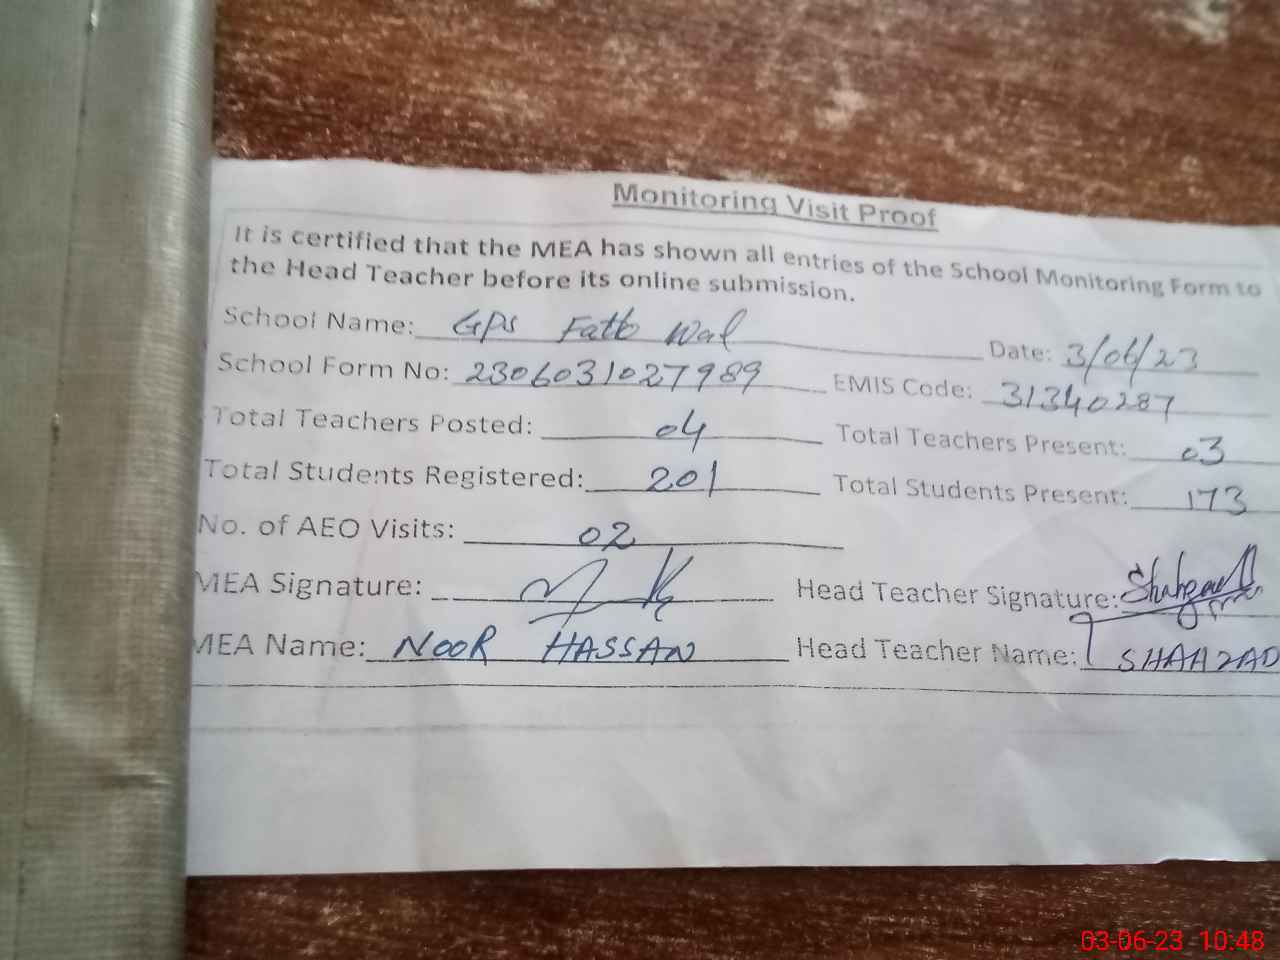 Monitoring Visit Proof
It is certified that the MEA has shown all entries of the School Monitoring Form to
the Head Teacher before its online submission.
School Name: GPS Fatto Wal Date: 3/06/23
School Form No: 2306031027989 EMIS Code: 31340287
Total Teachers Posted: 04 Total Teachers Present: 03
Total Students Registered: 201 Total Students Present: 173
No. of AEO Visits: 02
MEA Signature: Head Teacher Signature:
MEA Name: NOOR HASSAN Head Teacher Name: SHAHZAD
03-06-23 10:48